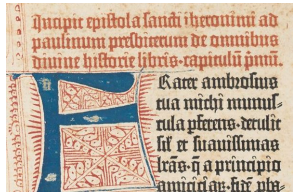 Incipit epistola sancti iheronimi ad
paulinum presbiterum de omnibus
diuine historie libris· capitulū pmū·
Frater ambrosius
tua michi munus-
cula pferens· detulit
sil' et suauissimas
lrās· q̄ a principio
amiciciaꝝ·